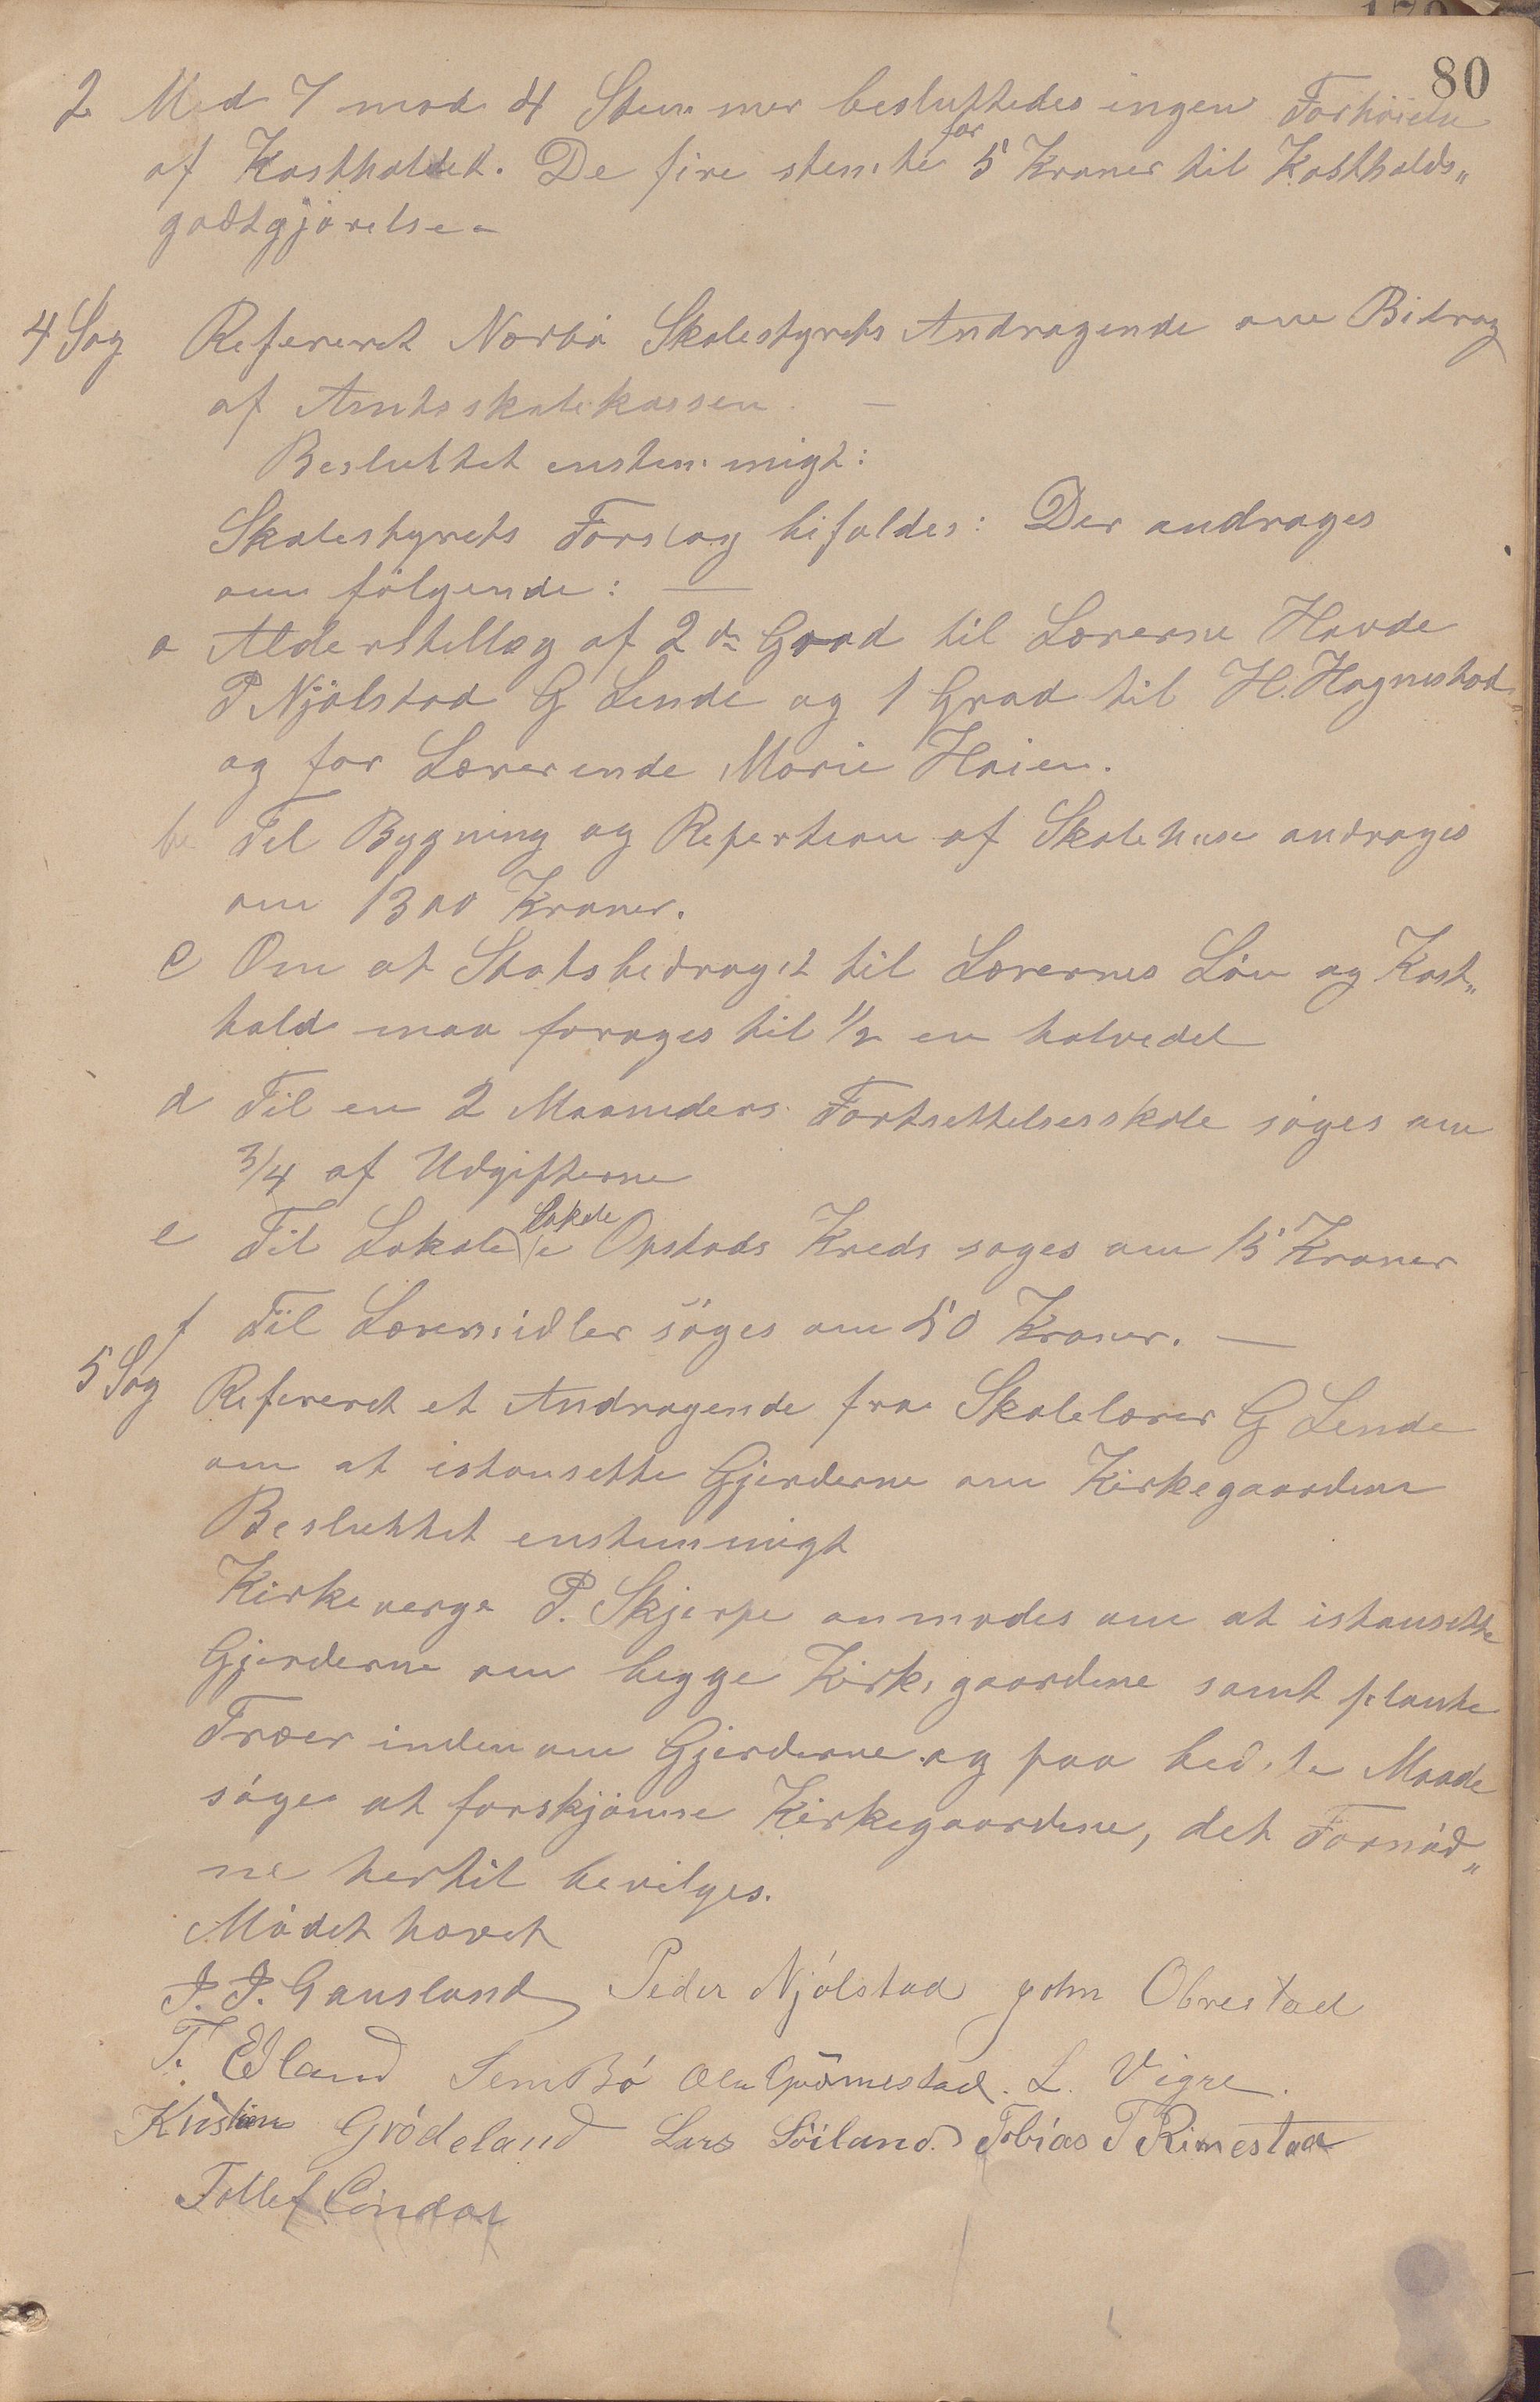 80
2 Med 7 mod 4 Stemmer besluttedes ingen Forhöielse
af Kostholdet. De fire stemte for 5 Kroner til Kostholds„
godtgjörelse.
4 Sag Refereret Nærbö Skolestyrets Andragende om Bidrag
af Amtsskolekassen. —
Besluttet enstemmigt:
Skolestyrets Forslag bifaldes: Der andrages
om fölgende: —
a Alderstillæg af 2de Grad til Lærerne Havde
P Njölstad G Lende og 1 Grad til H. Hognestad„
og for Lærerinde Marie Höien.
b Til Bygning og Repertion af Skolehuse andrages
om 1300 Kroner.
c Om at Statsbidraget til Lærernes Lön og Kost„
hold maa foröges til 1/2 en halvedel
d Til en 2 Maaneders Fortsettelsesskole söges om
3/4 af Udgifterne
e Til Lokale i Opstads Kreds söges om 15 Kroner
f Til Læremidler söges om 50 Kroner. —
5 Sag Refereret et Andragende fra Skolelærer G Lende
om at istansette Gjerderne om Kirkegaardene
Besluttet enstemmigt
Kirkeverge P. Skjerpe anmodes om at istansette
Gjerderne om begge Kirkegaardene samt plante
Træer indenom Gjerderne og paa bedste Maade
söge at forskjönne Kirkegaardene, det Fornöd„
ne hertil bevilges.
Mödet hævet
J. J. Gausland Peder Njölstad John Obrestad
T. Edland Sem Bö Ole Grömestad. L. Vigre.
Kristian Grödeland Lars Söiland. Tobias T Rimestad
Tollef Londal